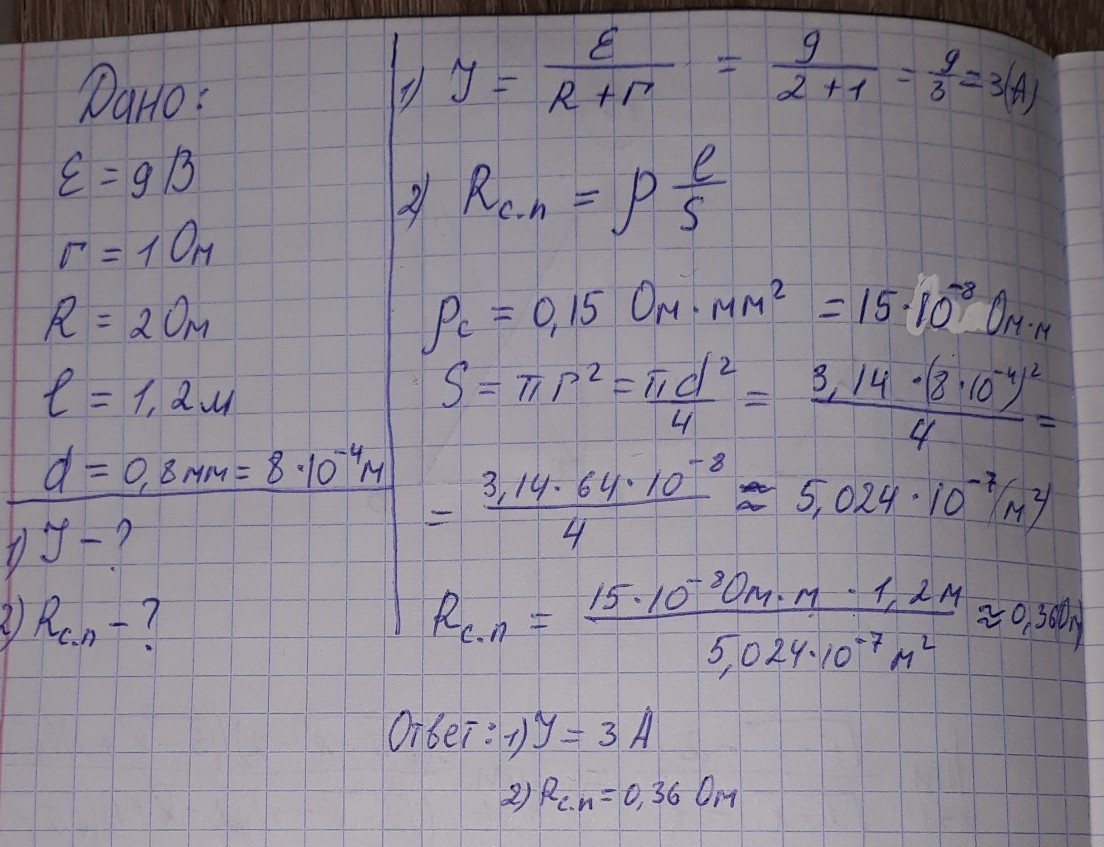 Дано:
ε = 9 В
r = 1 Ом
R = 2 Ом
l = 1,2 м
d = 0,8 мм = 8·10⁻⁴ м
1) J – ?
2) Rс.п – ?
1) J = ε / (R + r) = 9 / (2 + 1) = 9/3 = 3(А)
2) Rс.п = ρ l/S
ρс = 0,15 Ом·мм² = 15·10⁻⁸ Ом·м
S = πr² = πd²/4 = 3,14·(8·10⁻⁴)²/4 =
= 3,14·64·10⁻⁸/4 ≈ 5,024·10⁻⁷(м²)
Rс.п = 15·10⁻⁸ Ом·м · 1,2 м / 5,024·10⁻⁷ м² ≈ 0,36 Ом
Ответ: 1) J = 3 А
2) Rс.п = 0,36 Ом